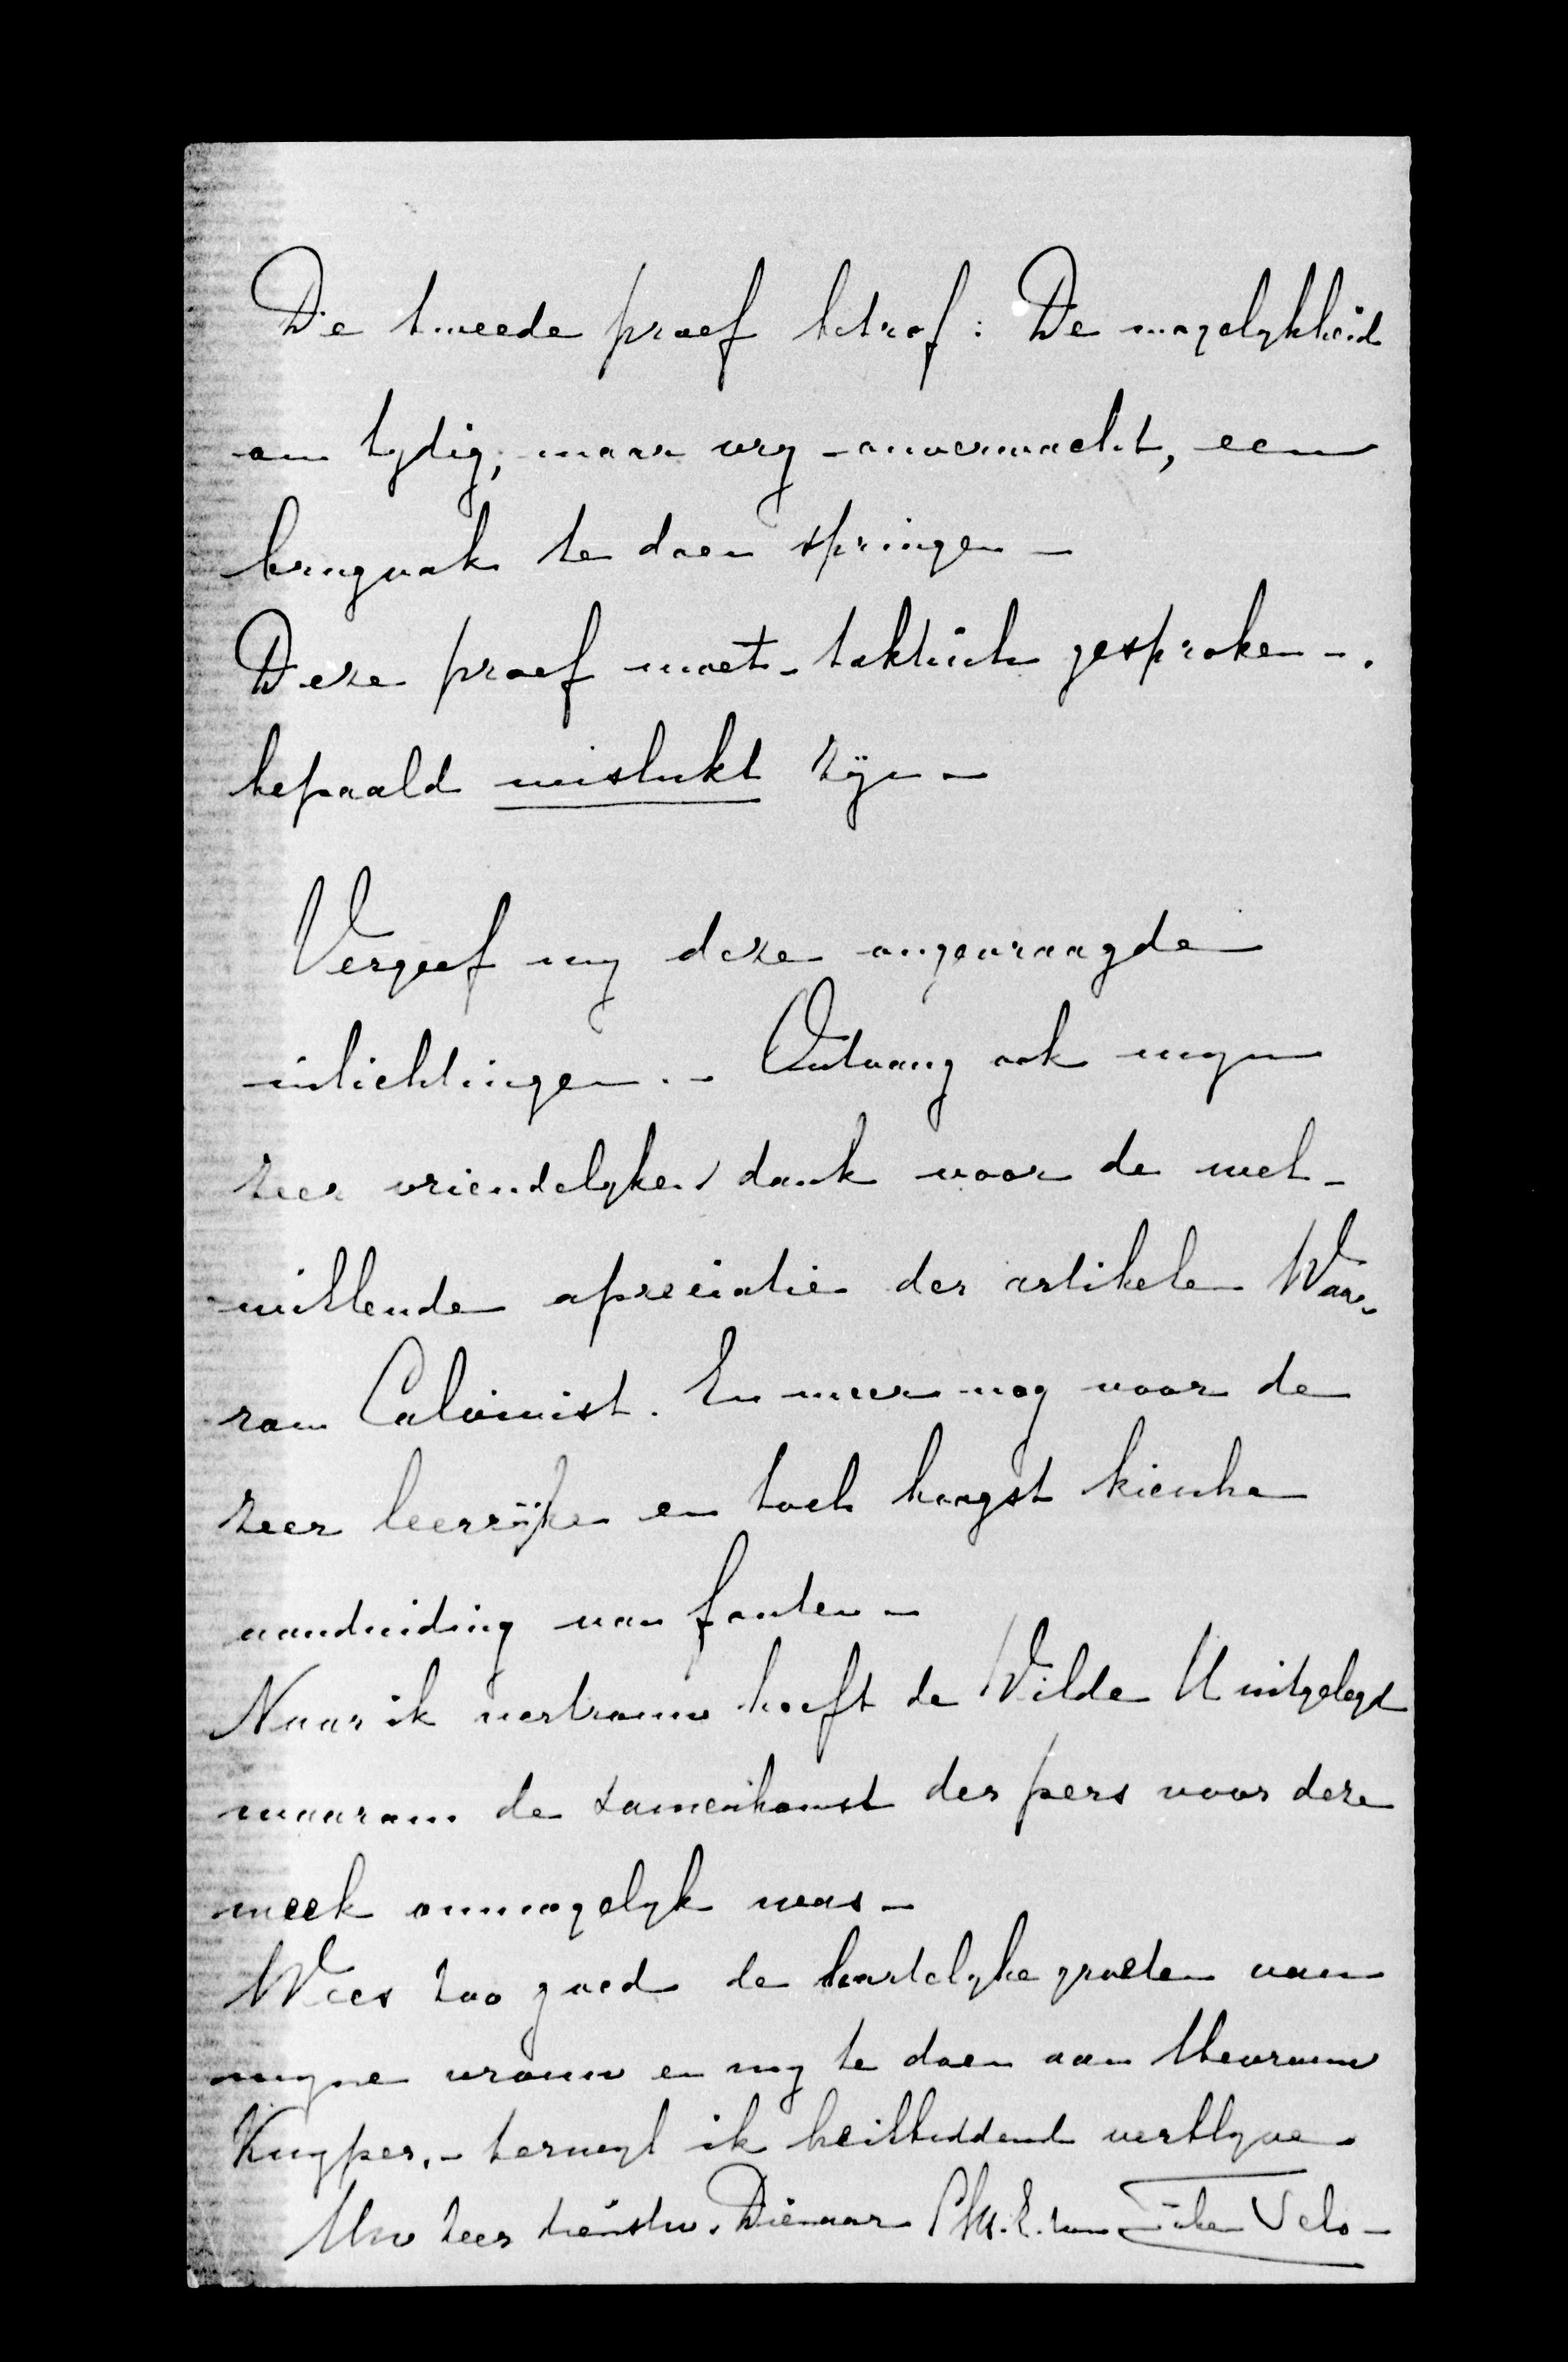 De tweede proef betrof: De mogelykheid
om tydig, maar vry-onverwacht, een
brugvak te doen springen –
Deze proef moet – taktisch gesproken –.
bepaald mislukt zijn –
Vergeef my deze ongevraagde
inlichtingen. – Ontvang ook mijn
zeer vriendelyken dank voor de wel-
willende apreciatie der artikelen Waa-
rom Calvinist. En meer nog voor de
zeer leerrijke en toch hoogst kiesche
aanduiding van fouten –
Naar ik vertrouw heeft de Wilde U uitgelegd
waarom de samenkomst der pers voor deze
week onmogelyk was –
Wees zoo goed de hartelyke groeten van
myne vrouw en my te doen aan Mevrouw
Kuyper, – terwyl ik heilbiddend verblyve –
Uw zeer dienstw. Dienaar